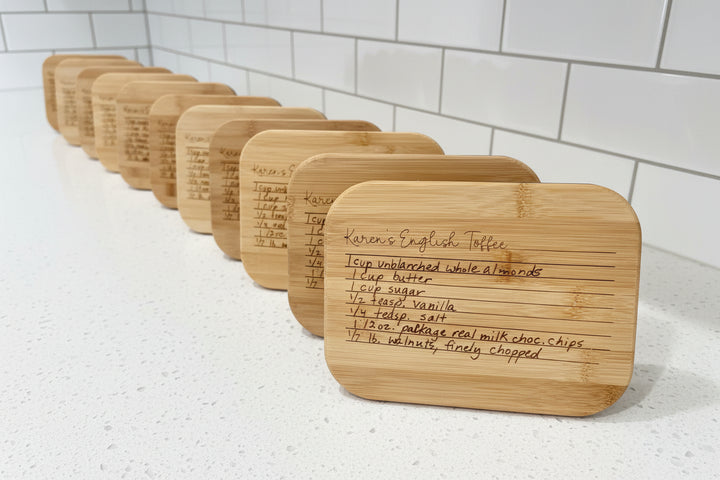 Karen's English Toffee
1 cup unblanched whole almonds
1 cup butter
1 cup sugar
1/2 teasp. vanilla
1/4 teasp. salt
1 12oz. package real milk choc. chips
1/7 lb. walnuts, finely chopped